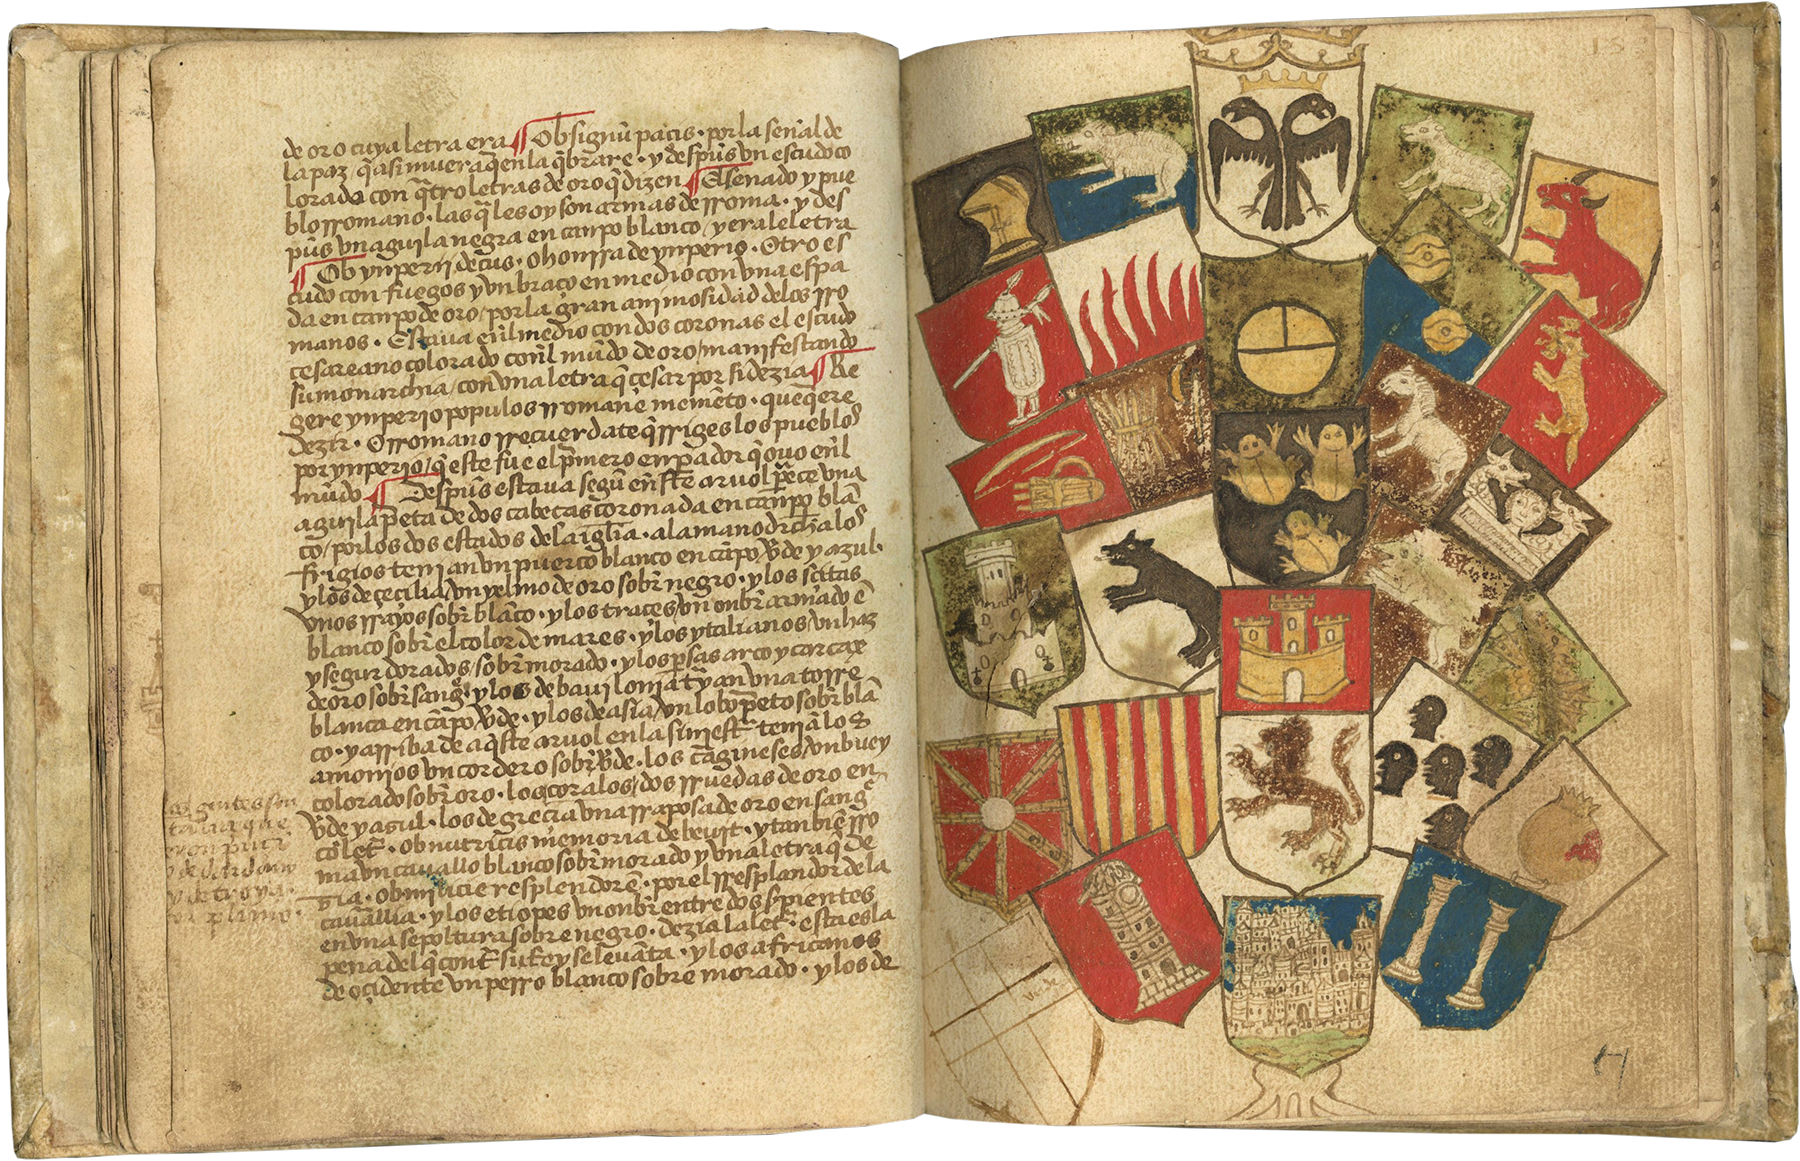 de oro cuya letra era ¶ Obsignũ pacis · por la señal de
la paz / q̃ asi muera q̃en la q̃brare · y despũs vn escudo co
lorado con q̃tro letras de oro q̃ dizen ¶ El senado y pue
blo rromano · las q̃les oy son armas de rroma · y des
pũs vn aguila negra en canpo blanco / y era le letra
¶ Ob ynperii decus · o honrra de ynperio · Otro es
cudo con fuegos y vn braço en medio con vna espa
da en canpo de oro / por la gran animosidad de los rro
manos · Estava en̄l medio con dos coronas el escudo
cesareano colorado con̄l mũdo de oro / manifestando
su monarchia / con vna letra q̃ cesar por si dezia ¶ Re
gere ynperio populos rromane memẽto · que q̃ere
dezir · O rromano rrecuerdate q̃ rriges los pueblos
por ynperio / q̃ este fue el p̃mero enp̃ador q̃ ovo en̄l
mũdo ¶ Despũs estava segũ en̄ste arvol p̃ece vna
aguila p̃eta de dos cabeças coronada en canpo blã
co / por los dos estados de la iglĩa · a la mano dr̃cha los
frigios tenian vn puerco blanco en cãpo ṽde y azul ·
y los de çeçilia / vn yelmo de oro sobr̃ negro · y los scitas
vnos rrayos sobr̃ blãco · y los traces vn onbr̃ armado ẽ
blanco sobr̃ el color de mares · y los ytalianos / vn haz
y segur dorados / sobr̃ morado · y los p̃sas arco y carcax
de oro sobr̃ sang̃ · y los de bavilonia t̃yan vna torre
blanca en cãpo ṽde · y los de asia / vn lobo p̃eto sobr̃ blã
co · y arriba de aq̃ste arvol en la siniest̃ tenia los
amonios vn cordero sobr̃ ṽde · los c̃agineses / vn buey
colorado sobr̃ oro · los coralos / dos rruedas de oro en
ṽde y azul · los de grecia vna rraposa de oro en sang̃
cõ let̃ · ob nutricis memoria debuit · y tanbiẽ rro
ma vn cavallo blanco sobr̃ morado y vna letra q̃ de
zia · ob milicie resplendorẽ · por el rresplandor de la
cavallia · y los etiopes vn onbr̃ entre dos s̃pientes
en vna sepoltura sobre negro · dezia la let̃ · esta es la
pena del q̃ cont̃ su rey se levãta · y los africanos
de oçidente vn perro blanco sobre morado · y los de
verde
15
17